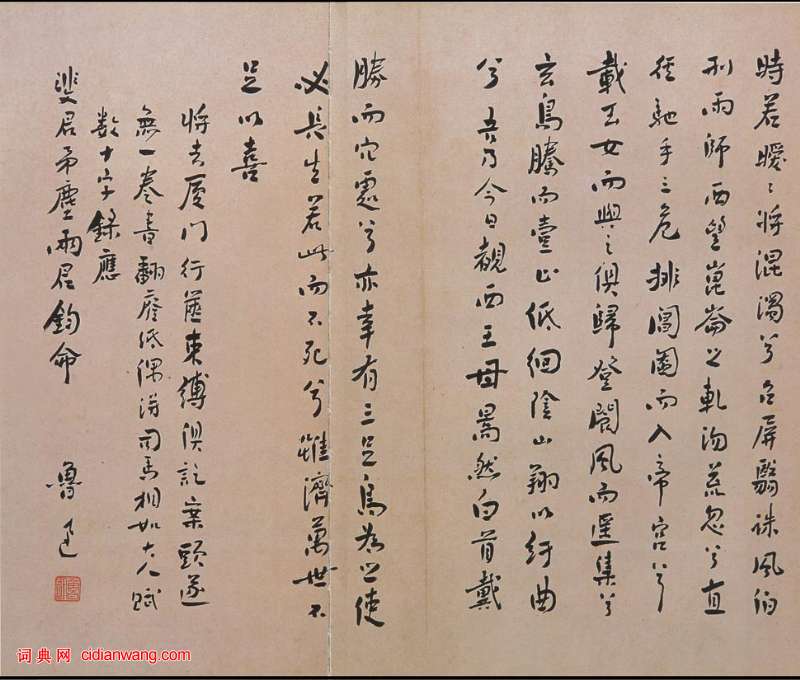 時若曖〻將混濁兮召屏翳誅風伯
刑雨師西望崑崙之軋沕荒忽兮直
徑馳乎三危排閶闔而入帝宮兮
載玉女而與之俱歸登閬風而遥集兮
玄鳥騰而壹止低徊陰山翔以紆曲
兮吾乃今日覩西王母暠然白首戴
勝而穴處兮亦幸有三足烏為之使
必長生若此而不死兮雖濟萬世不
足以喜
將去厦門行篋束縛俱訖案頭遂
無一卷書翻廢紙偶得司馬相如大人賦
數十字錄應
斐君矛塵兩君鈞命
魯迅
词典网 cidianwang.com